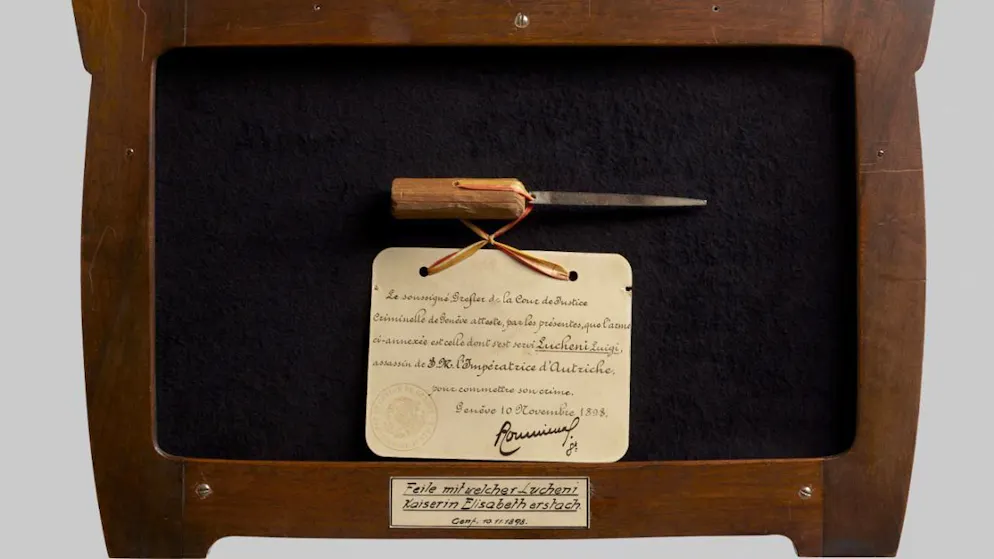 Le soussigné Greffier de la Cour de Justice
Criminelle de Genève atteste, par les présentes, que l'arme
ci-annexée est celle dont s'est servi Lucheni Luigi,
assassin de S.M. l'Impératrice d'Autriche,
pour commettre son crime.
Genève 10 Novembre 1898.
Feile mit welcher Lucheni
Kaiserin Elisabeth erstach.
Genf. 10.11.1898.